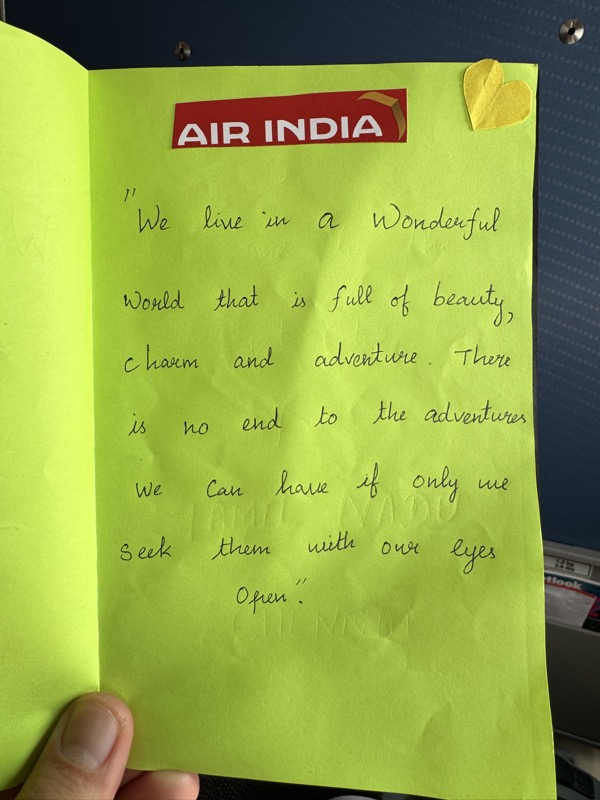 AIR INDIA
"We live in a Wonderful
World that is full of beauty,
charm and adventure. There
is no end to the adventures
we can have if only we
seek them with our eyes
Open".
TAMIL NADU
CHENNAI
outlook